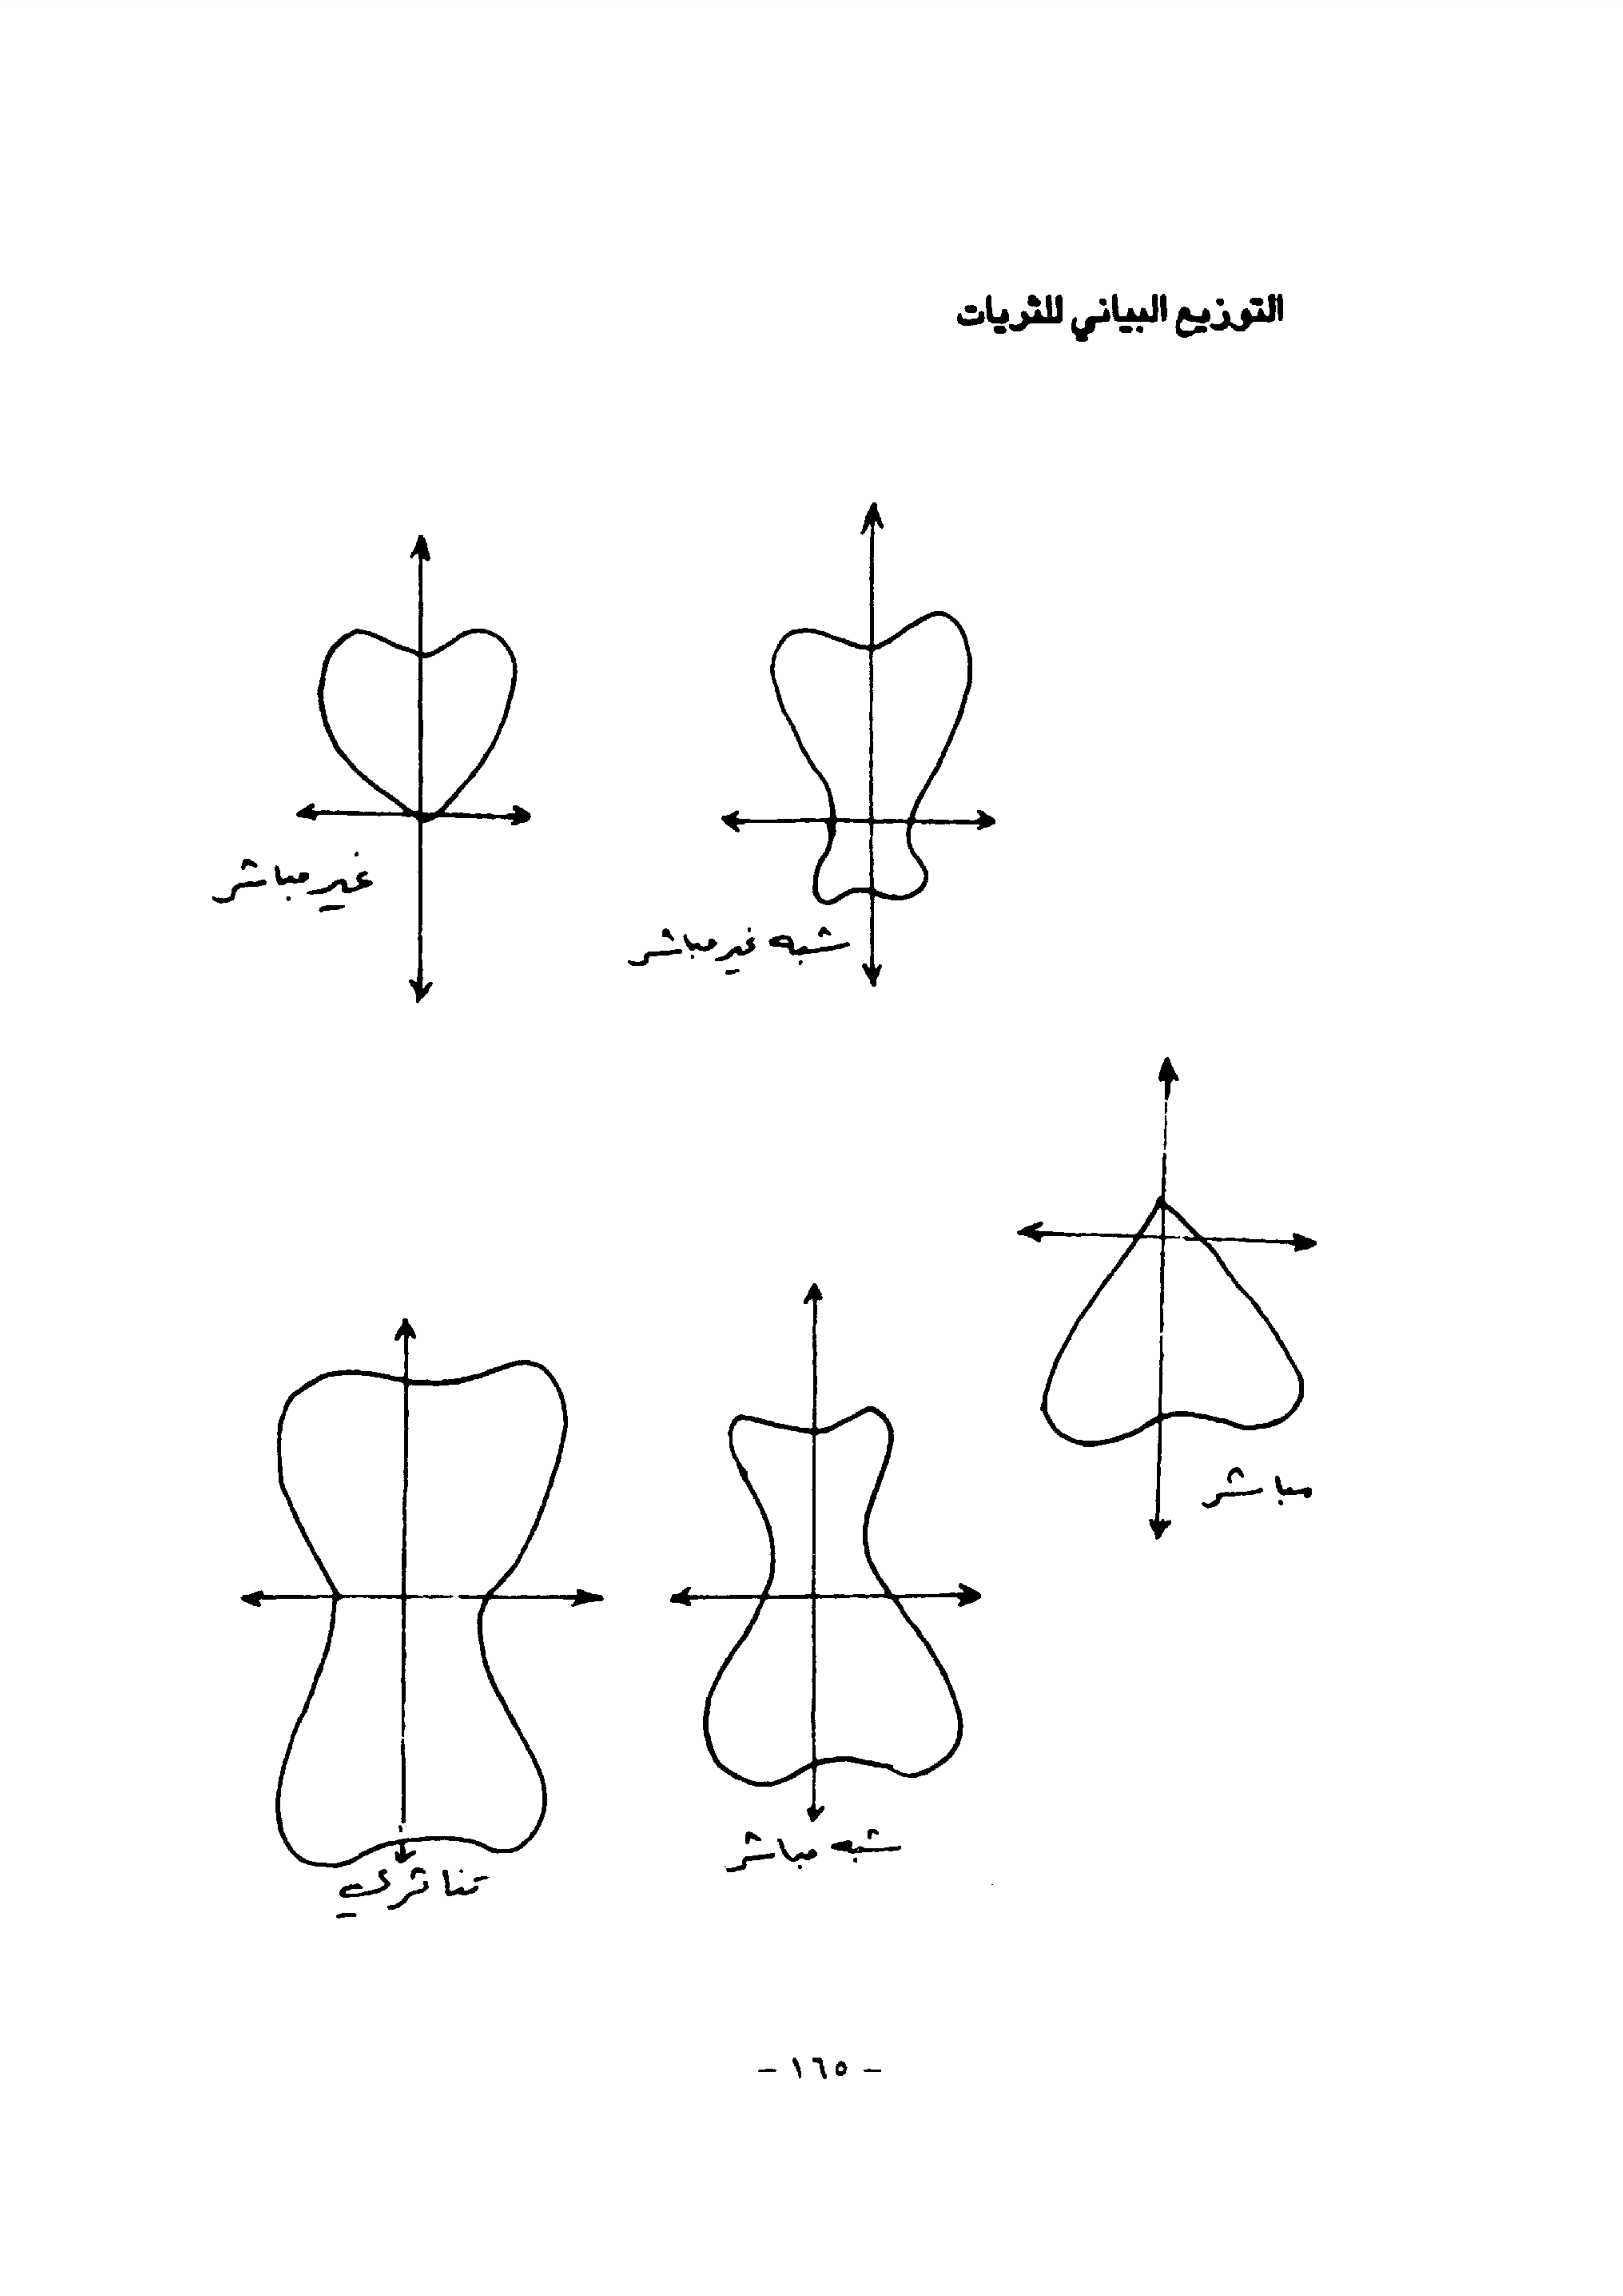 التوزيع البياني للثريات
شبه غير مباشر
غير مباشر
مباشر
شبه مباشر
تناثري
- ١٦٥ -